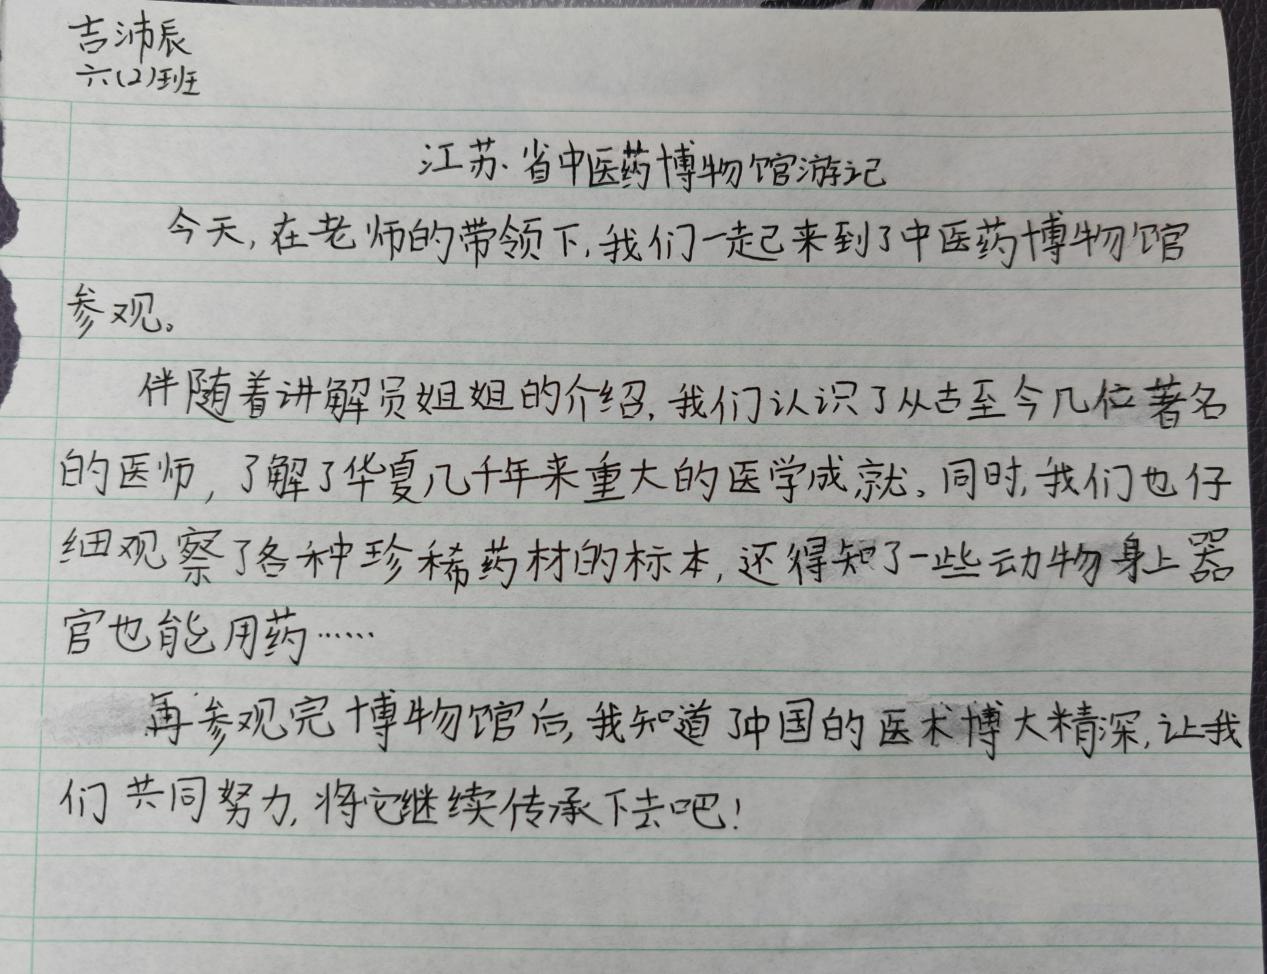 吉沛辰
六(2)班
江苏省中医药博物馆游记
今天,在老师的带领下,我们一起来到了中医药博物馆
参观。
伴随着讲解员姐姐的介绍,我们认识了从古至今几位著名
的医师,了解了华夏几千年来重大的医学成就。同时,我们也仔
细观察了各种珍稀药材的标本,还得知了一些动物身上器
官也能用药……
再参观完博物馆后,我知道了中国的医术博大精深,让我
们共同努力,将它继续传承下去吧!